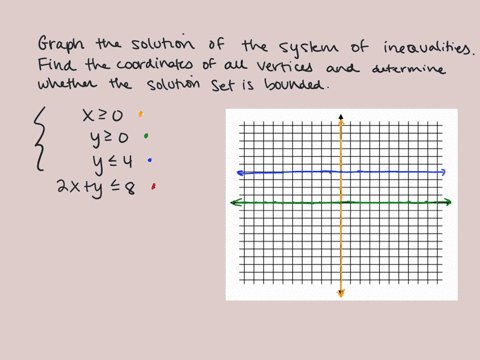 Graph the solution of the system of inequalities.
Find the coordinates of all vertices and determine
whether the solution set is bounded.
x ≥ 0
y ≥ 0
y ≤ 4
2x+y ≤ 8